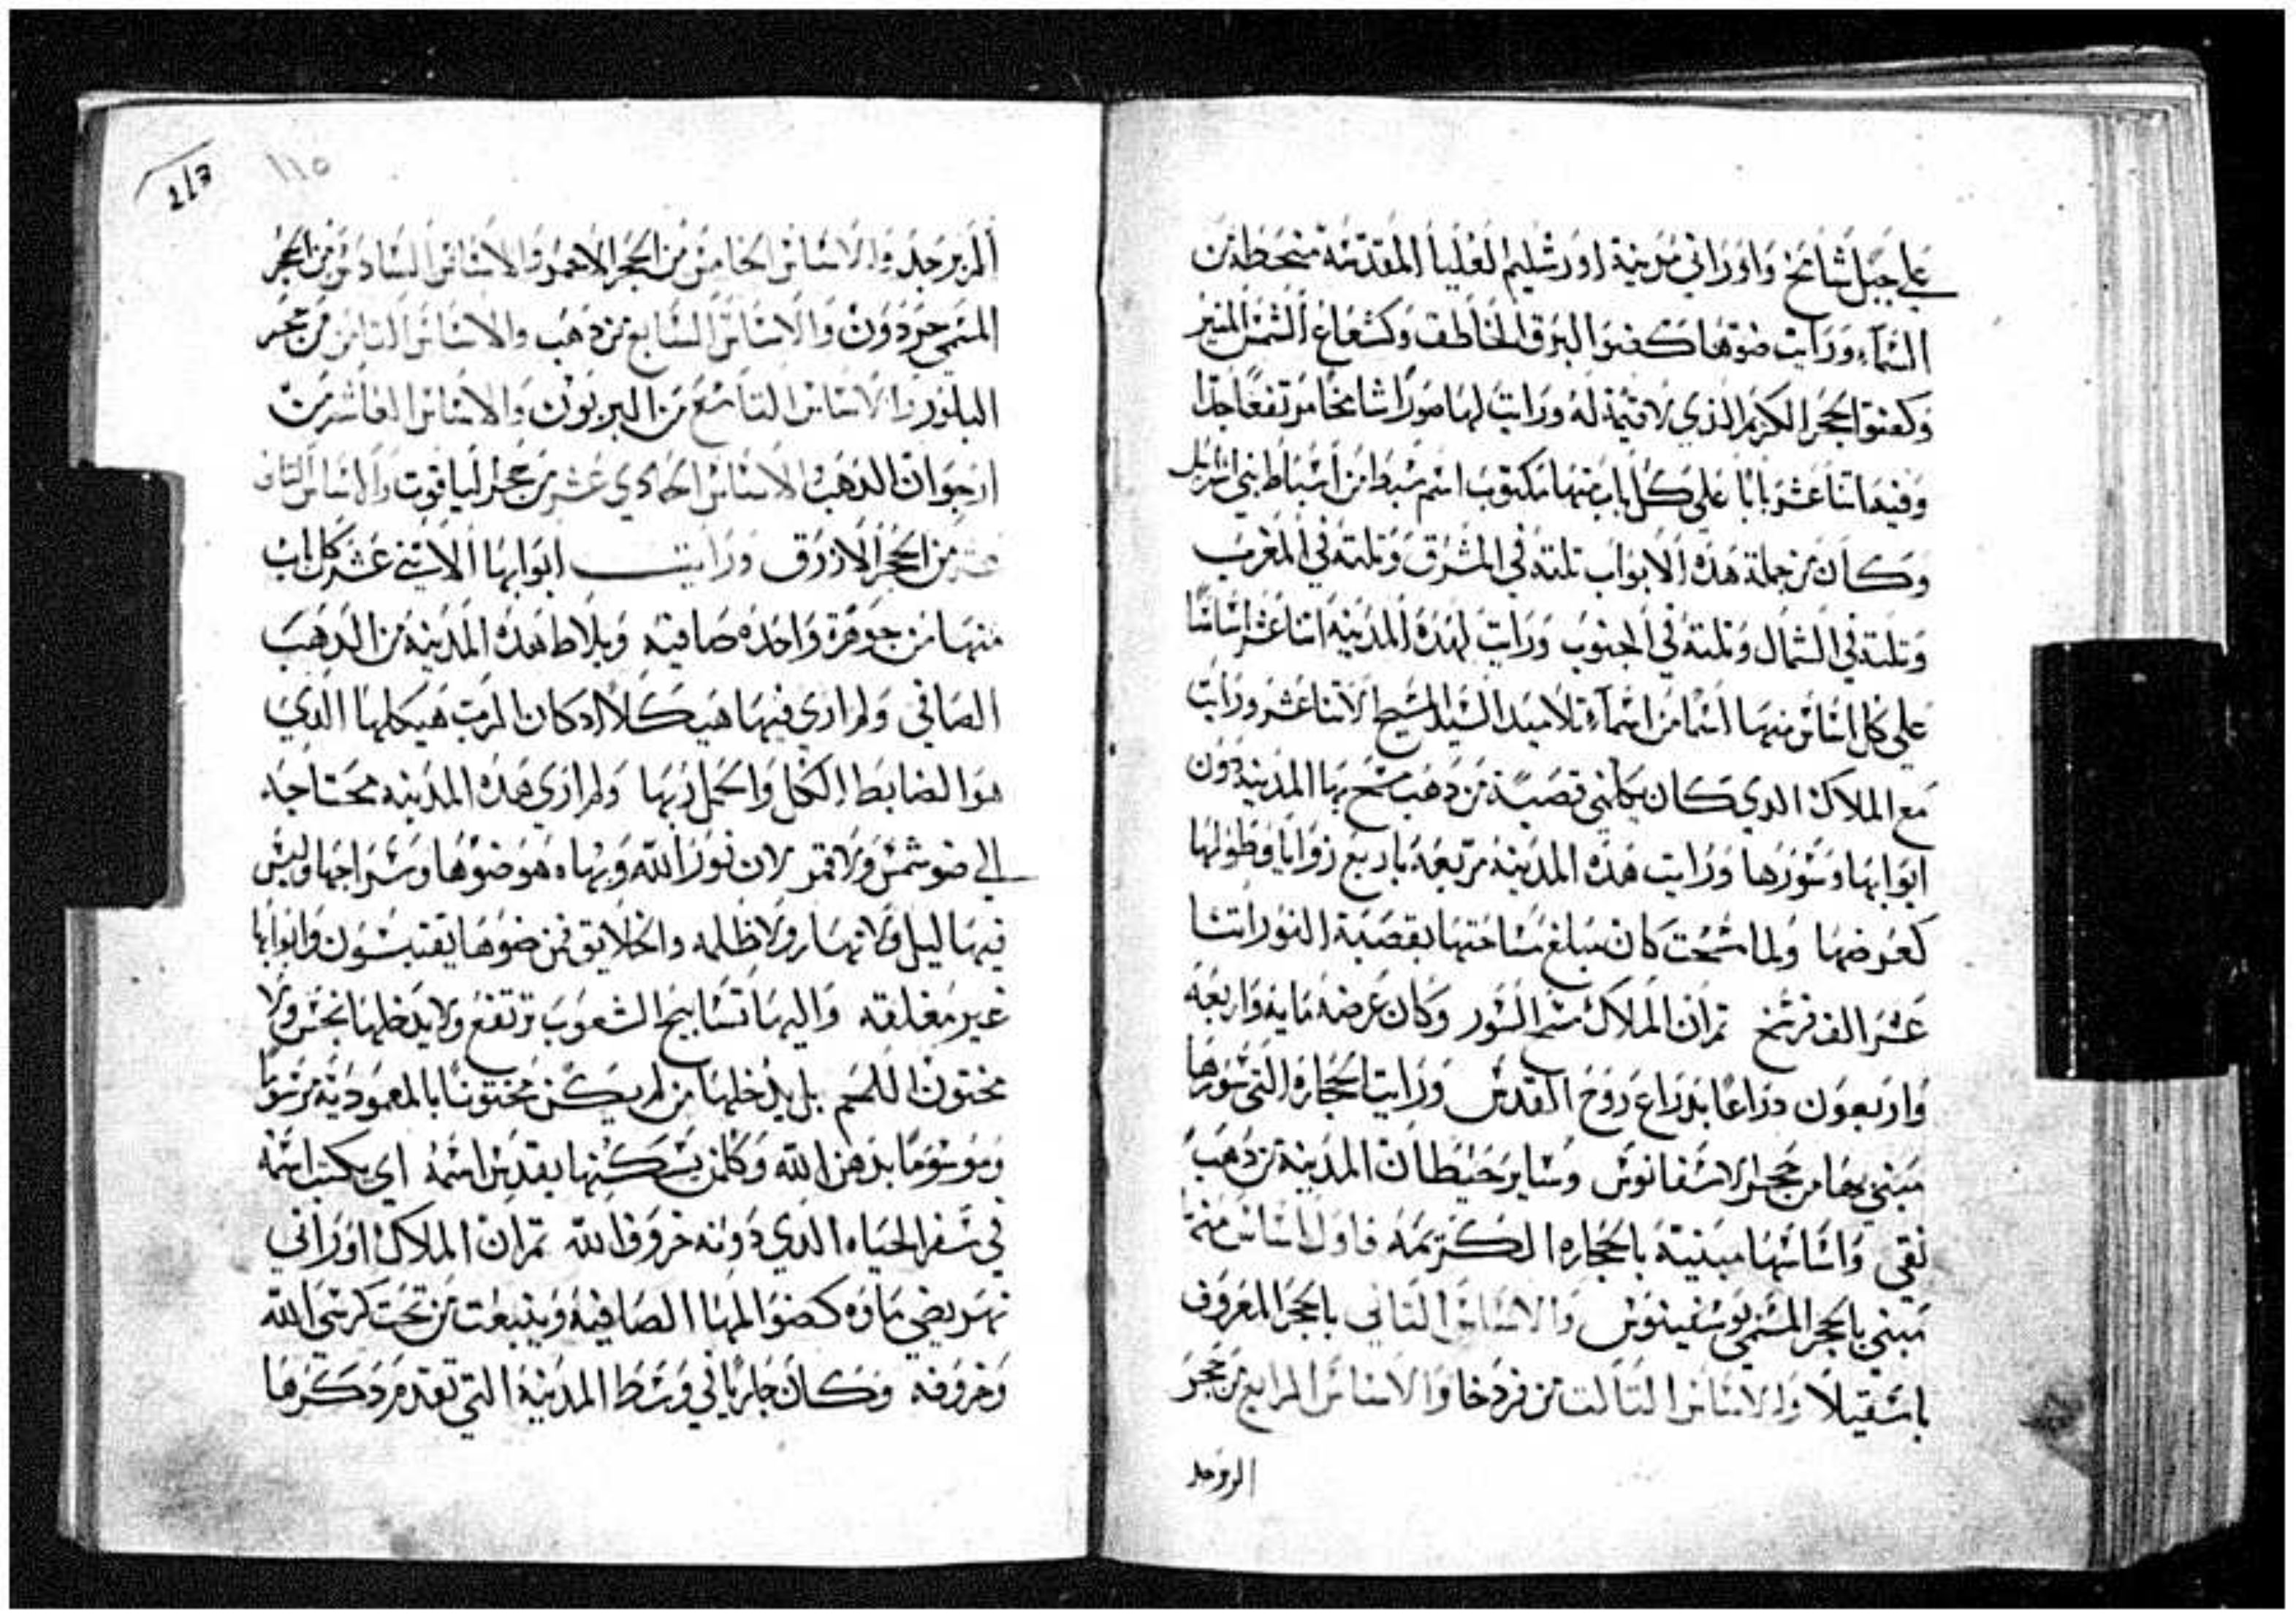 علي جبل شامخ واوراني مدينة اورشليم العليا المقدسة منحطه من
السماء ورايت ضوها كضو البرق الخاطف وكشعاع الشمس المنير
وكضو الحجر الكريم الذي لا قيمة له ورايت لها صورًا شامخًا مرتفعًا جدا
وفيها اتنا عشر بابًا علي كل باب منها مكتوب اسم سبط من اسباط بني اسرايل
وكان من جملة هذه الابواب تلته في المشرق وتلته في المغرب
وتلته في الشمال وتلته في الجنوب ورايت لهذه المدينة اتنا عشر اساسًا
علي كل اساس منها اسما من اسماء تلاميد السيد المسيح الاتنا عشر ورايت
مع الملاك الدي كان يكلمني قصبة من دهب يمسح بها المدينة دون
ابوابها وسورها ورايت هذه المدينة مربعه باربع زوايا وطولها
كعرضها ولما مسحت كان مبلغ مساحتها بقصبة النور اتنا
عشر الف فرسخ تم ان الملاك مسح السور وكان عرضه مايه واربعه
واربعون دراعًا بدراع روح القدس ورايت الحجاره التي سورها
مبني بها من حجر الاسفانوس وساير حيطان المدينة من دهب
نقي واساسها مبنية بالحجاره الكريمه فاول اساس منها
مبني بالحجر المسمي بوسفينوس والاساس التاني بالحجر المعروف
باسقيلا والاساس التالت من فردخا والاساس الرابع من حجر
الزبرجد
117
١١٥
الزبرجد والاساس الخامس من الحجر الاحمر والاساس السادس من الحجر
المسمي جردون والاساس السابع من دهب والاساس التامن من حجر
البلور والاساس التاسع من البربون والاساس العاشر من
ارجوان الدهب الاساس الحادي عشر من حجر الياقوت والاساس التاني
عشر من الحجر الازرق ورايت ابوابها الاتني عشر كل باب
منها من جوهرة واحده صافيه وبلاط هذه المدينة من الدهب
الصافي ولم اري فيها هيكلا اد كان الرب هيكلها الدي
هو الضابط الكل والحمل ربها ولم اري هذه المدينه محتاجه
الي ضو شمس ولا قمر لان نور الله وبهاه هو ضوها وسراجها وليس
فيها ليل ولا نهار ولا ظلمه والخلايق من ضوها يقتبسون وابوابها
غير مغلقه واليها تسابيح الشعوب ترتفع ولا يدخلها نجس ولا
مختون اللحم بل يدخلها من لم يكن مختونًا بالمعمودية مرسومًا
وموسومًا بدهن الله وكلمن يسكنها يقدس اسمه اي يكتب اسمه
في سفر الحياه الدي دونه خروف الله تم ان الملاك اوراني
نهر يضي ماوه كضو المها الصافيه وينبعت من تحت كرسي الله
وخروفه وكان جاريًا في وسط المدينة التي تقدم دكرها